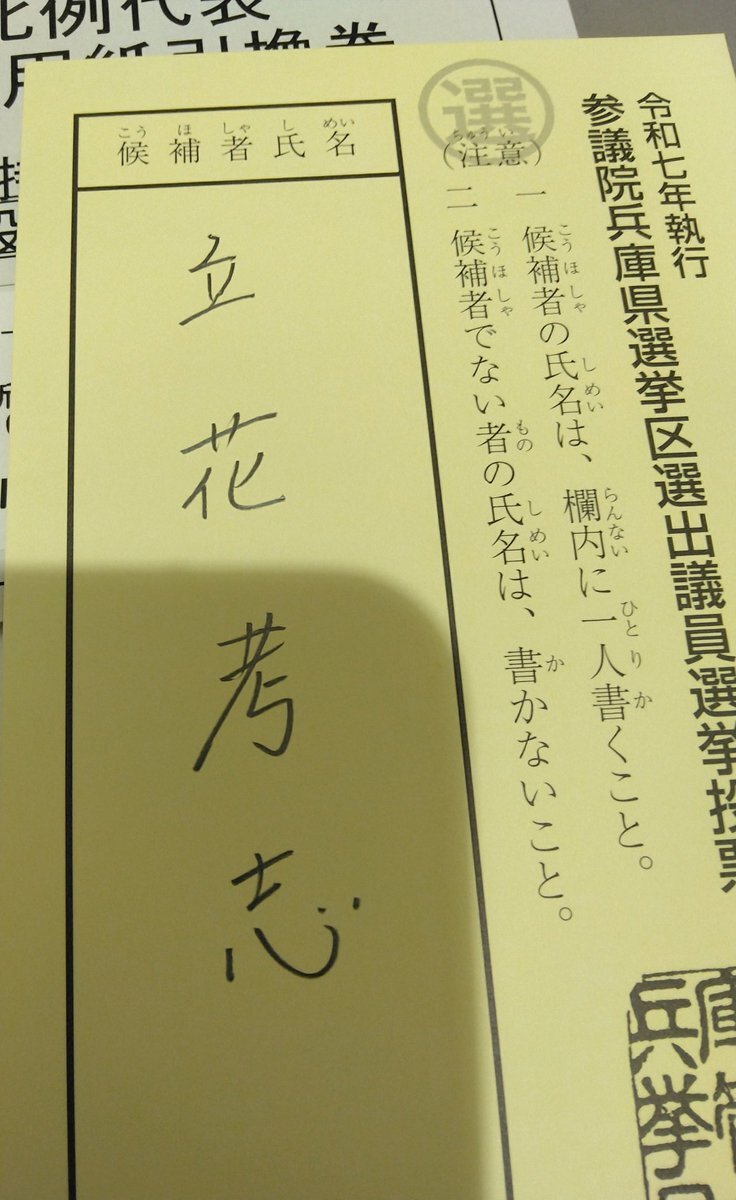 比例代表
用紙引換券
令和七年執行
参議院兵庫県選挙区選出議員選挙投票
選
(注意)
一 候補者の氏名は、欄内に一人書くこと。
二 候補者でない者の氏名は、書かないこと。
候補者氏名
立花考志
兵庫
挙管